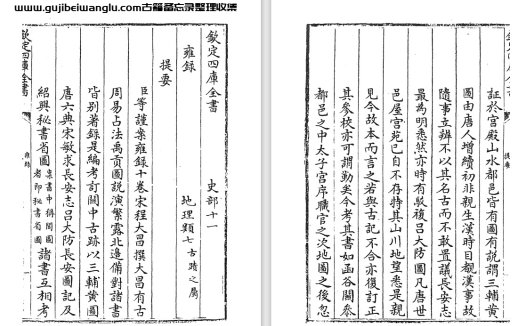 www.gujibeiwanglu.com古籍备忘录整理收集
欽定四庫全書　史部十一
雍錄　地理類七古蹟之屬
提要
臣等謹案雍錄十卷宋程大昌撰大昌有古
周易占法禹貢圖說演繁露北邊備對諸書
皆別著錄是編考訂關中古跡以三輔黃圖
唐六典宋敏求長安志呂大防長安圖記及
紹興秘書省圖案書中稱閣圖者即秘書省圖諸書互相考
欽定四庫全書　雍錄
證於宮殿山水都邑皆有圖有說謂三輔黃
圖由唐人增續初非親生漢時目覩漢事故
隨事立辨不以其名古而不敢置議長安志
最為明悉然亦時有駁複呂大防圖凡唐世
邑屋宮苑已自不存特其山川地望悉是親
見今故本而言之若與古記不合亦復訂正
其參校亦可謂勤矣今考其書如函谷關參
都邑之中太子宮序職官之次地圖之後忽